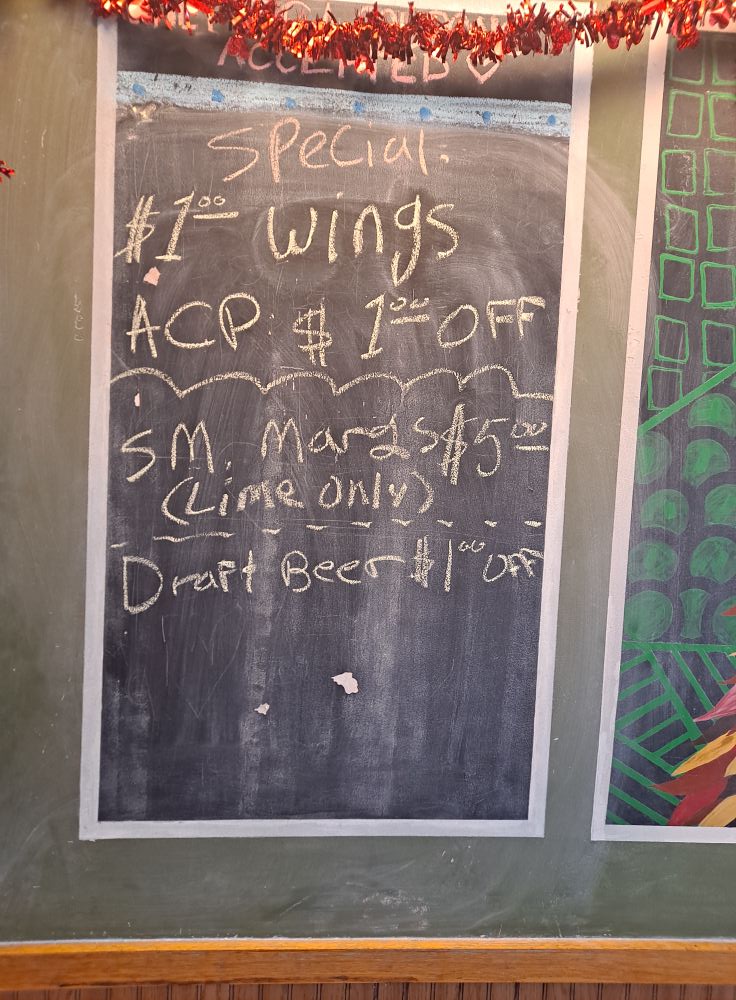 ACCEPTED ♡
Special.
$1.00 Wings
ACP $1.00 OFF
SM. Margs $5.00
(Lime only)
Draft Beer $1.00 OFF